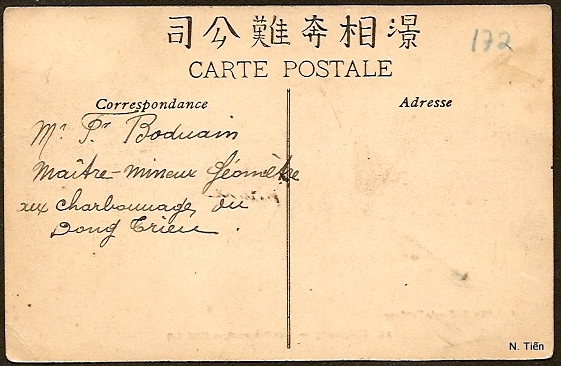 澋相奔難公司
172
CARTE POSTALE
Correspondance
Adresse
Mr Pr Boduain
Maître-mineur Géomètre
aux charbonnages du
Dong Trieu.
N. Tiến